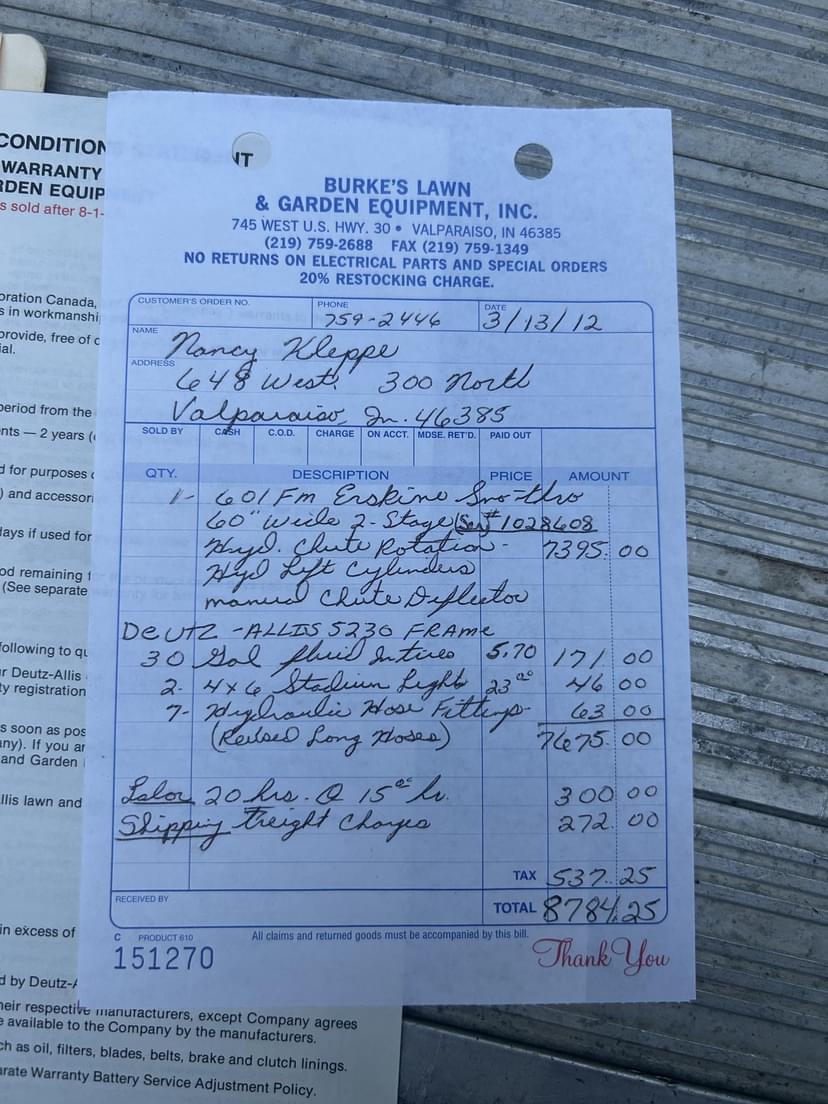 CONDITION
WARRANTY
RDEN EQUIP
s sold after 8-1-
oration Canada,
s in workmanshi
provide, free of c
ial.
period from the
nts — 2 years (
d for purposes
) and accessori
days if used for
od remaining f
(See separate
following to qu
r Deutz-Allis
ty registration
s soon as pos
any). If you ar
and Garden
llis lawn and
in excess of
d by Deutz-A
heir respective manufacturers, except Company agrees
e available to the Company by the manufacturers.
ch as oil, filters, blades, belts, brake and clutch linings.
arate Warranty Battery Service Adjustment Policy.
NT
BURKE'S LAWN
& GARDEN EQUIPMENT, INC.
745 WEST U.S. HWY. 30 • VALPARAISO, IN 46385
(219) 759-2688 FAX (219) 759-1349
NO RETURNS ON ELECTRICAL PARTS AND SPECIAL ORDERS
20% RESTOCKING CHARGE.
CUSTOMER'S ORDER NO. PHONE 759-2446 DATE 3/13/12
NAME Nancy Kleppe
ADDRESS 648 West 300 North
Valparaiso, In. 46385
SOLD BY CASH C.O.D. CHARGE ON ACCT. MDSE. RET'D. PAID OUT
QTY. DESCRIPTION PRICE AMOUNT
1- 601 Fm Erskine Sno-thro
60" Wide 2-Stage (Ser# 1028608
Hyd. Chute Rotation - 7395.00
Hyd Lift Cylinders
manual Chute Deflector
DEUTZ-ALLIS 5230 FRAME
30 Gal fluid 5.70 171 00
2- 4x6 Stadium Light 23 00 46 00
7- Hydraulic Hose Fittings- 63 00
(Long Hoses) 7675.00
Labor 20 hrs. @ 15 00 hr. 300 00
Shipping Freight Charges 272.00
TAX 537.25
RECEIVED BY
TOTAL 8784.25
C PRODUCT 610 All claims and returned goods must be accompanied by this bill.
151270 Thank You